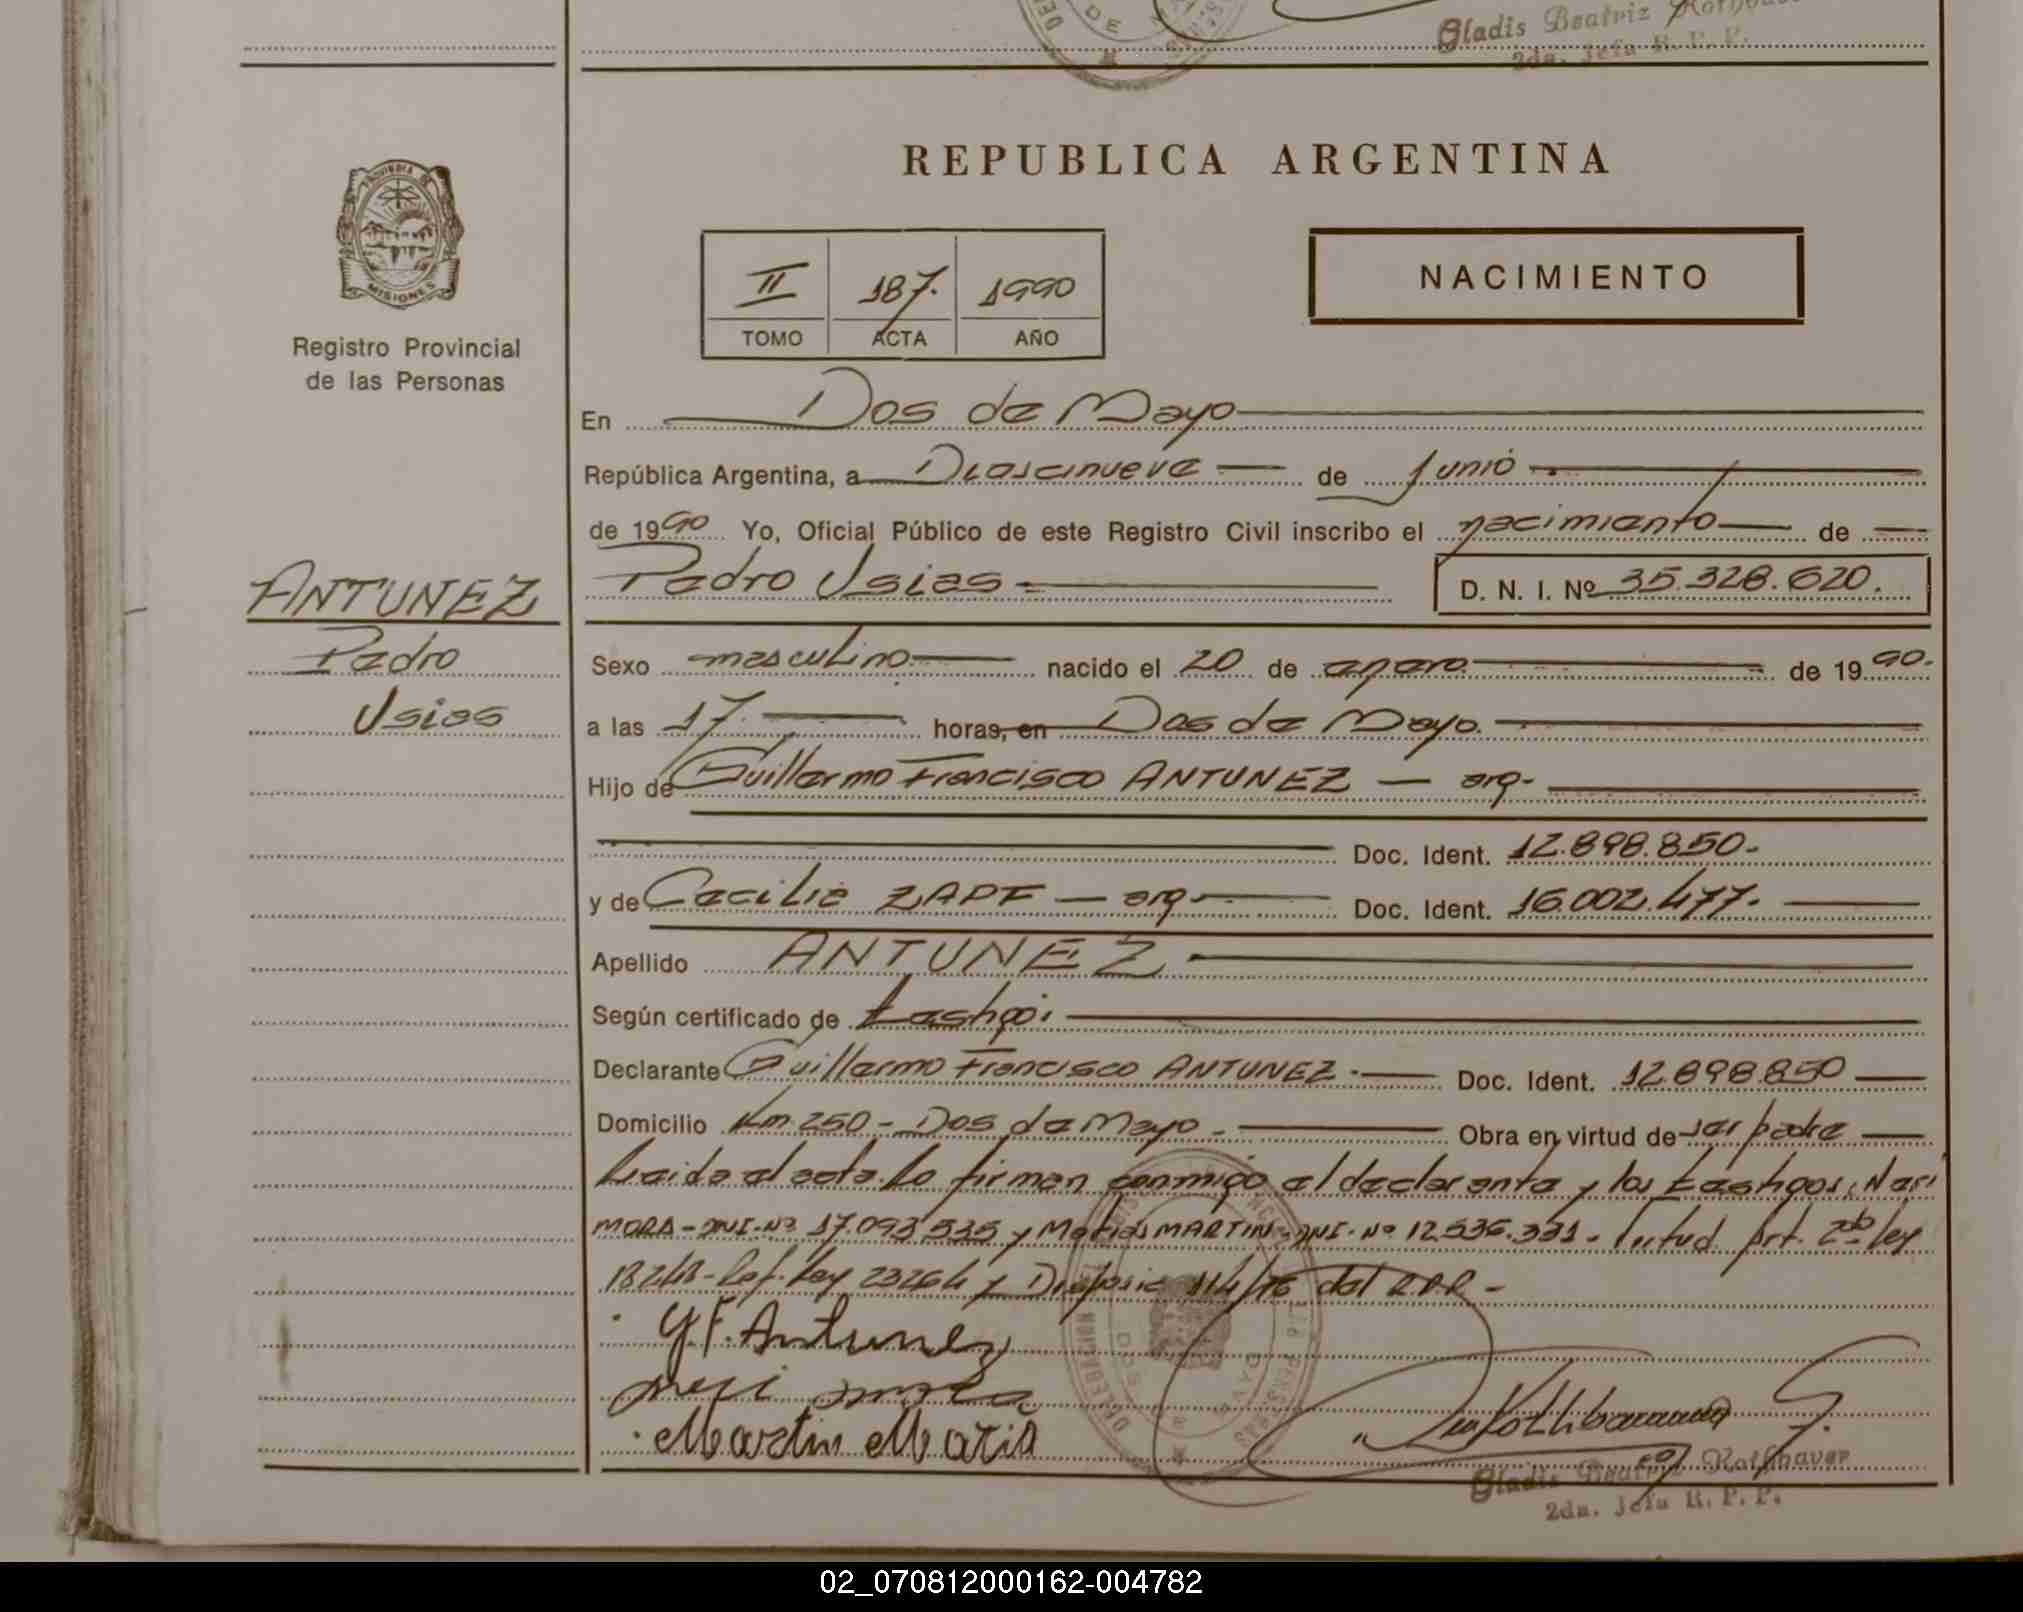 Gladis Beatriz
2da. Jefa R. P. P.
REPUBLICA ARGENTINA
PROVINCIA DE MISIONES
Registro Provincial
de las Personas
II 187. 1990
TOMO ACTA AÑO
NACIMIENTO
En Dos de Mayo
República Argentina, a Diecinueve de Junio
de 1990 Yo, Oficial Público de este Registro Civil inscribo el nacimiento de
ANTUNEZ
Pedro Usias
D. N. I. Nº 35.328.620.
Pedro
Usias
Sexo masculino nacido el 20 de enero de 1990.
a las 17. horas, en Dos de Mayo.
Hijo de Guillermo Francisco ANTUNEZ — arg-
Doc. Ident. 12.898.850-
y de Cecilia ZAPF — arg- Doc. Ident. 16.002.477.
Apellido ANTUNEZ
Según certificado de testigoi
Declarante Guillermo Francisco ANTUNEZ. Doc. Ident. 12.898.850
Domicilio Km 250 - Dos de Mayo - Obra en virtud de ser padre
Leida el acta lo firman conmigo el declarante y los testigos, Neri
MORA - DNI-Nº 17.093.535 y Matias MARTIN - DNI-Nº 12.536.331 - Art. 2º ley
18248 - Ley 23264 y 114/76 del R.P.P. -
G. F. Antunez
neri mora
Martin Matia
DELEGACION DOS DE MAYO
Gladis Beatriz Rothhaver
2da. Jefa R. P. P.
02_070812000162-004782